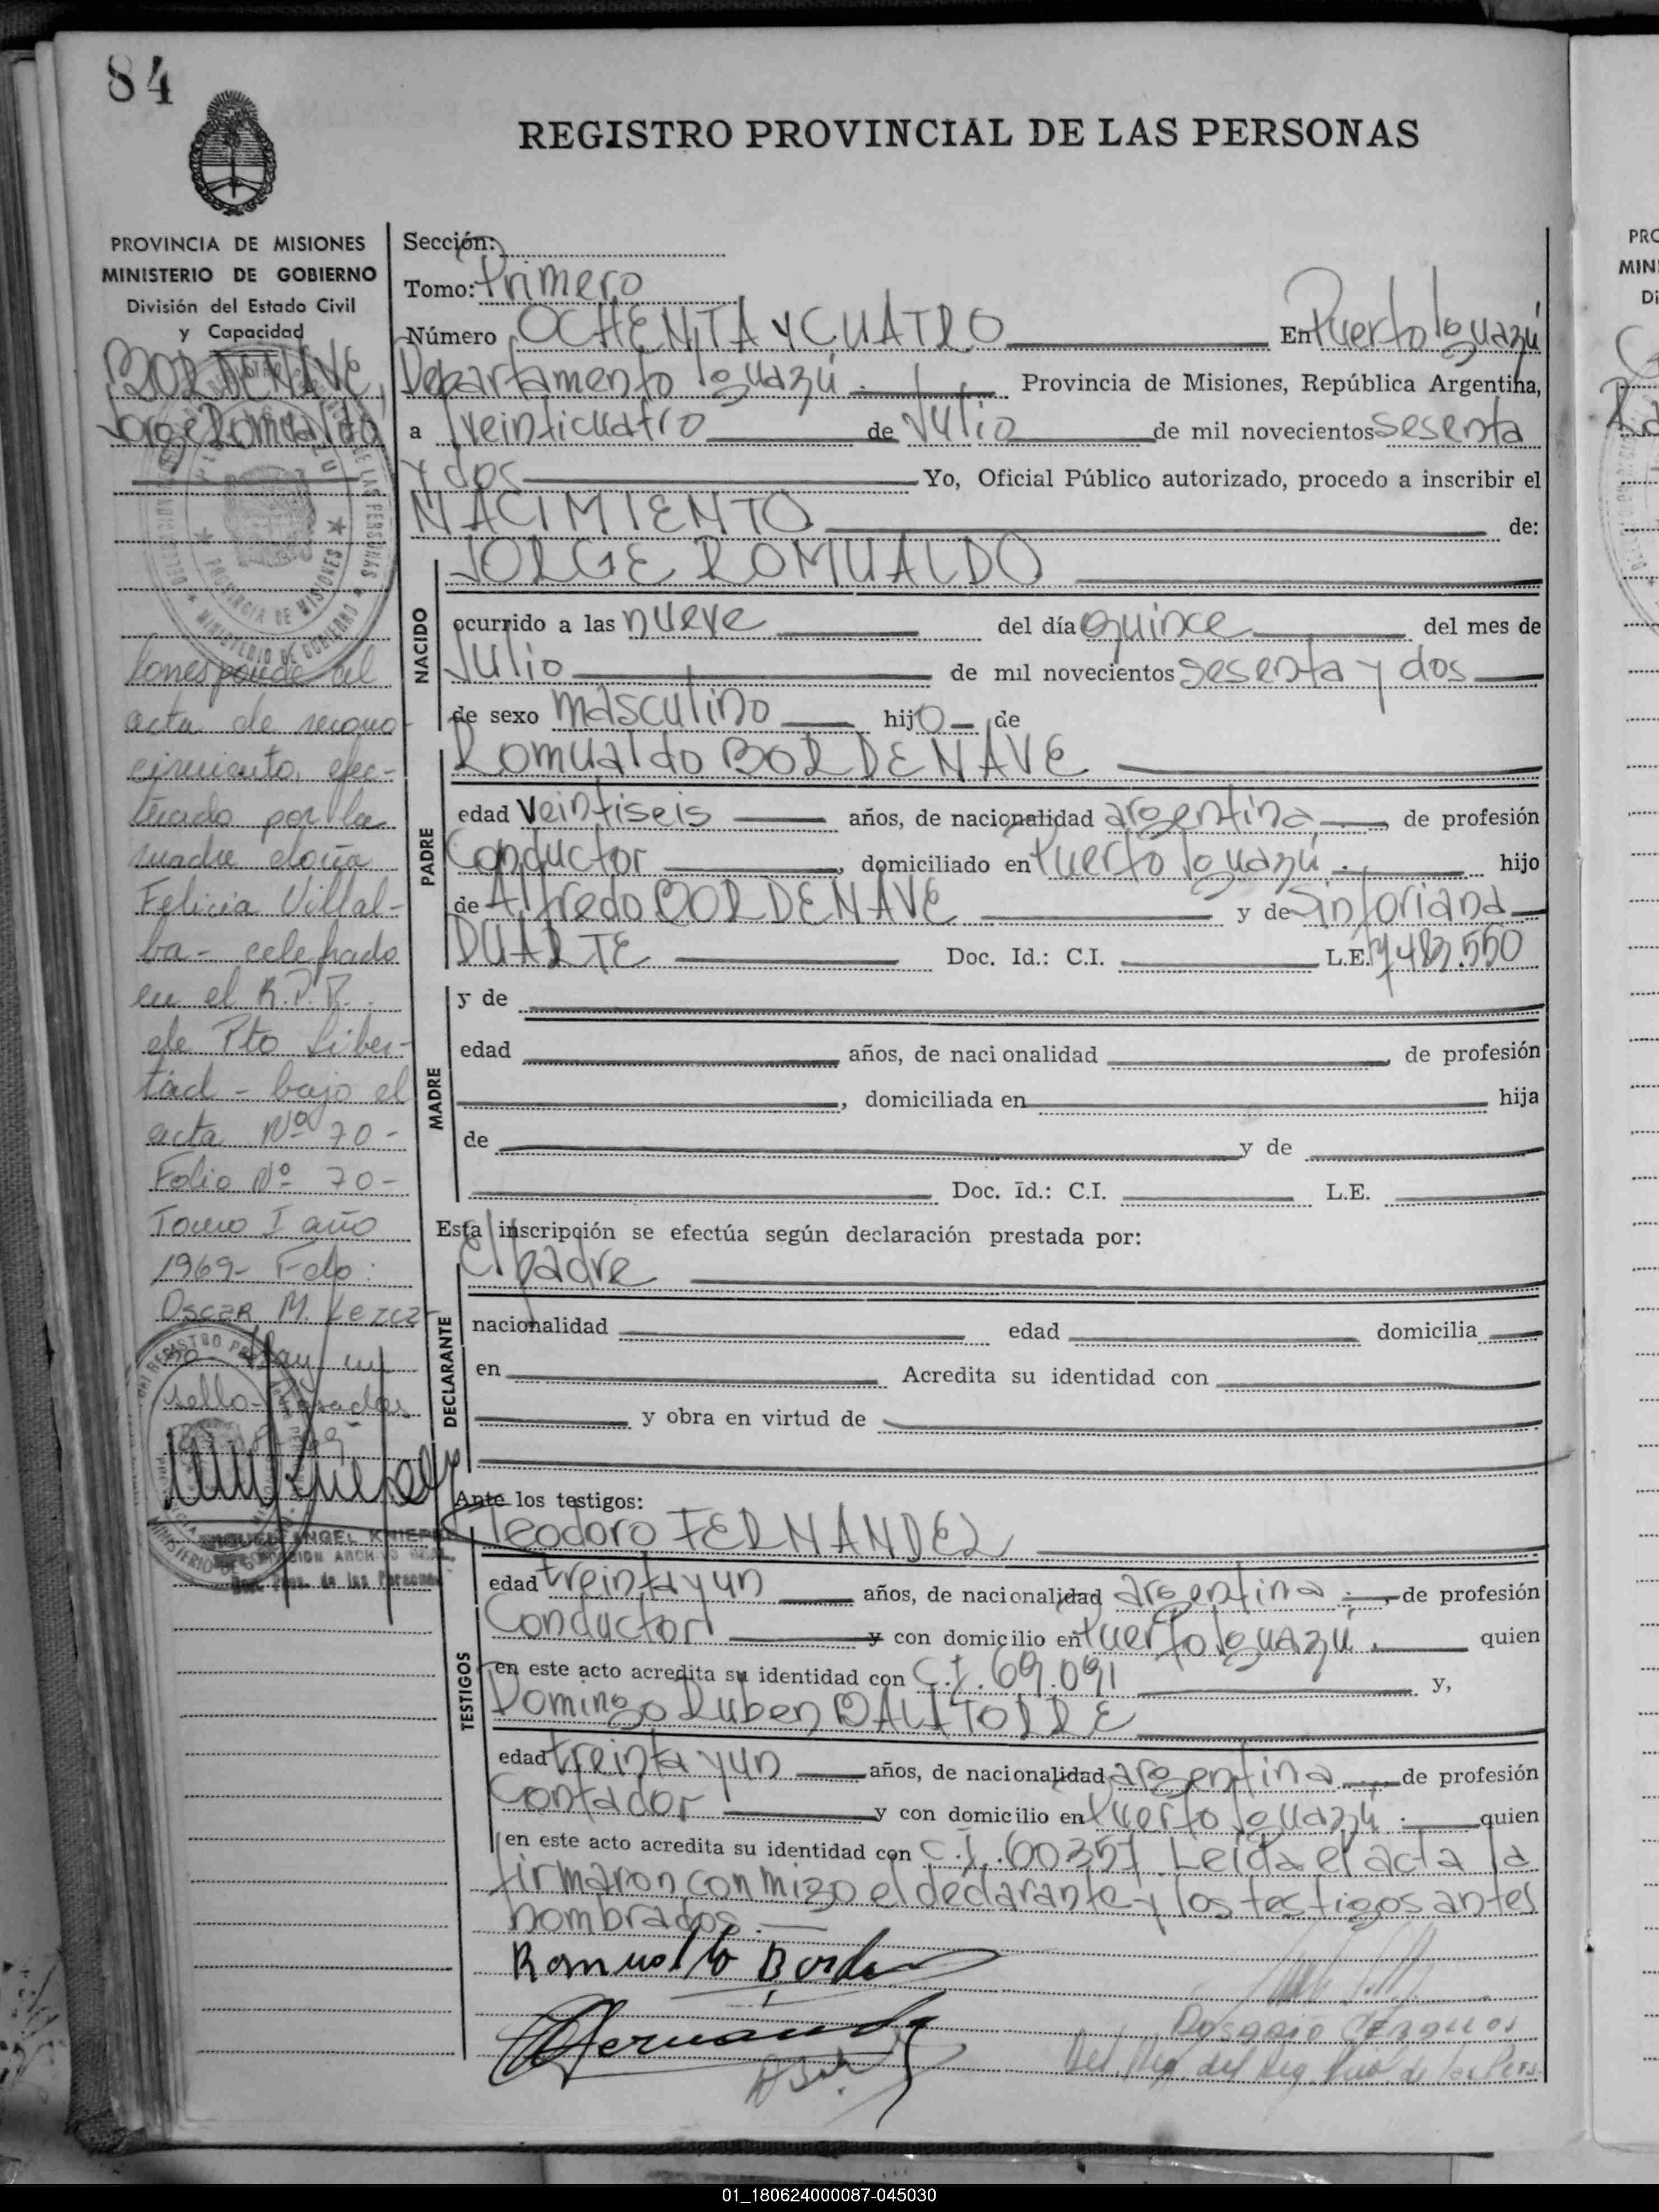 84
REGISTRO PROVINCIAL DE LAS PERSONAS
PROVINCIA DE MISIONES
MINISTERIO DE GOBIERNO
División del Estado Civil
y Capacidad
BORDENAVE,
Jorge Romualdo
Corresponde al
acta de recono-
cimiento, efec-
tuado por la
madre doña
Felicia Villal-
ba - celebrado
en el R.P.P.
de Pto Liber-
tad - bajo el
acta Nº 70-
Folio Nº 70-
Tomo I año
1969- Fdo:
Oscar M. Lezca-
no Hay un
sello- Posadas
MIGUEL ANGEL
Sección:
Tomo: Primero
Número OCHENTA Y CUATRO En Puerto Iguazú
Departamento Iguazú.- Provincia de Misiones, República Argentina,
a Veinticuatro de Julio de mil novecientos sesenta
y dos Yo, Oficial Público autorizado, procedo a inscribir el
NACIMIENTO de:
NACIDO
JORGE ROMUALDO
ocurrido a las nueve del día quince del mes de
Julio de mil novecientos sesenta y dos
de sexo masculino hijo- de
PADRE
Romualdo BORDENAVE
edad veintiseis años, de nacionalidad argentina, de profesión
Conductor, domiciliado en Puerto Iguazú.- hijo
de Alfredo BORDENAVE y de Sinforiana
DUARTE Doc. Id.: C.I. L.E. 7.483.550
MADRE
y de
edad años, de nacionalidad , de profesión
, domiciliada en hija
de y de
Doc. Id.: C.I. L.E.
Esta inscripción se efectúa según declaración prestada por:
DECLARANTE
El padre
nacionalidad edad domicilia
en Acredita su identidad con
y obra en virtud de
Ante los testigos:
TESTIGOS
Teodoro FERNANDEZ
edad treinta y un años, de nacionalidad argentina.-, de profesión
Conductor y con domicilio en Puerto Iguazú. quien
en este acto acredita su identidad con C.I. 69.091 y,
Domingo Ruben DALATORRE
edad treinta y un años, de nacionalidad argentina de profesión
Contador y con domicilio en Puerto Iguazú.- quien
en este acto acredita su identidad con C.I. 60.357 Leida el acta la
firmaron conmigo el declarante y los testigos antes
nombrados.-
Romualdo Borde
Rosario
01_180624000087-045030